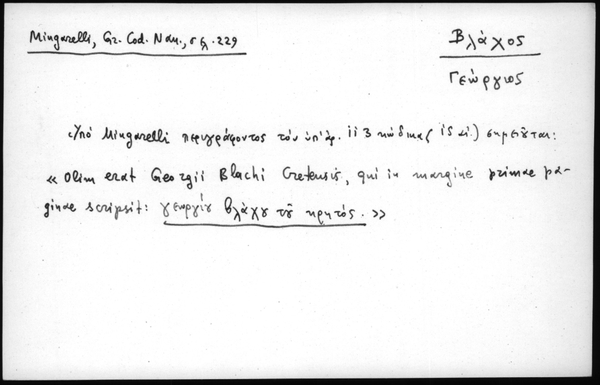 Mingarelli, Gr. Cod. Nan., σελ. 229
Βλάχος
Γεώργιος
Ὑπό Mingarelli περιγράφοντος τόν ὑπ' ἀρ. 113 κώδικα ( αἰ.) σημειοῦται:
« Olim erat Georgii Blachi Cretensis, qui in margine primae pa-
ginae scripsit: γεωργίου βλάχου τοῦ κρητός. »